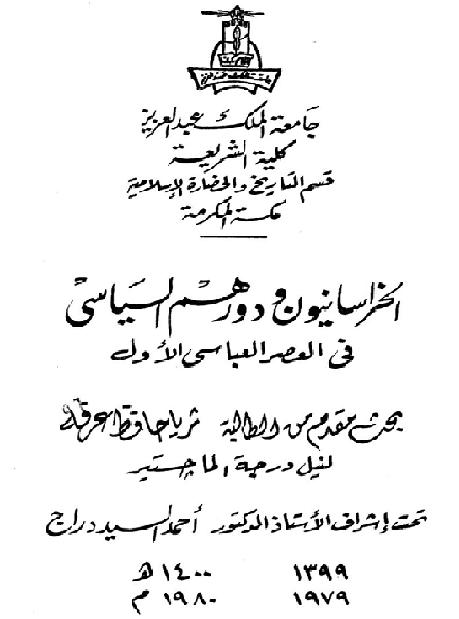 جامعة الملك عبد العزيز
كلية الشريعة
قسم التاريخ والحضارة الإسلامية
مكة المكرمة
الخراسانيون ودورهم السياسي
في العصر العباسي الأول
بحث مقدم من الطالبة ثريا حافظ عرفة
لنيل درجة الماجستير
تحت إشراف الأستاذ الدكتور أحمد السيد دراج
١٣٩٩ ١٤٠٠ هـ
١٩٧٩ ١٩٨٠ م